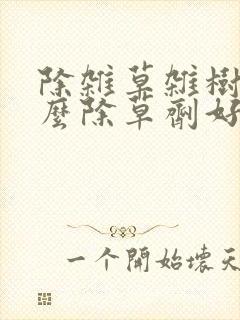 除雑草雑樹
麼除草劑好
一个開始壞天